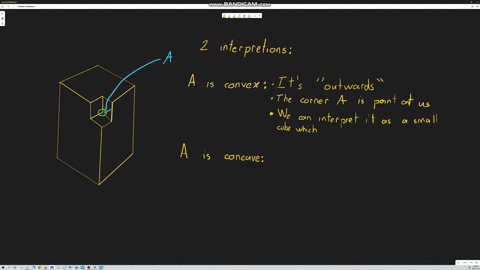 WWW.BANDICAM.COM
A
2 interpretions:
A is convex: • It's "outwards"
• The corner A is point at us
• We can interpret it as a small
cube which
A is concave: